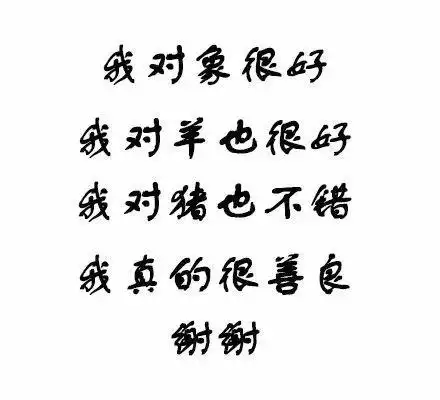 我对象很好
我对羊也很好
我对猪也不错
我真的很善良
谢谢